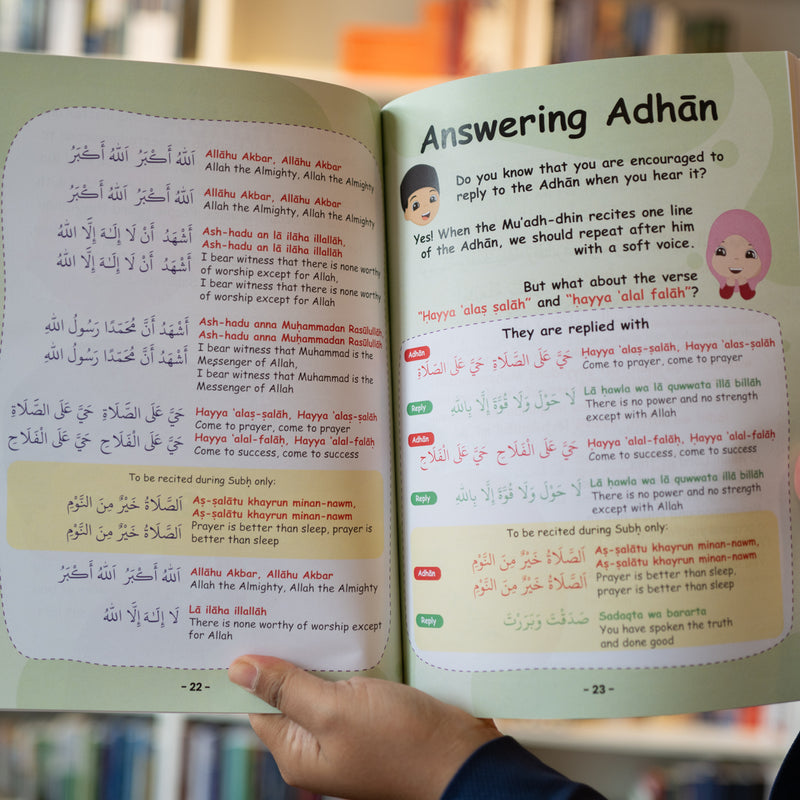 اَللهُ أَكْبَرُ اَللهُ أَكْبَرُ Allāhu Akbar, Allāhu Akbar
Allah the Almighty, Allah the Almighty
اَللهُ أَكْبَرُ اَللهُ أَكْبَرُ Allāhu Akbar, Allāhu Akbar
Allah the Almighty, Allah the Almighty
أَشْهَدُ أَنْ لَا إِلَـٰهَ إِلَّا اللهُ Ash-hadu an lā ilāha illallāh,
أَشْهَدُ أَنْ لَا إِلَـٰهَ إِلَّا اللهُ Ash-hadu an lā ilāha illallāh
I bear witness that there is none worthy
of worship except for Allah,
I bear witness that there is none worthy
of worship except for Allah
أَشْهَدُ أَنَّ مُحَمَّدًا رَسُولُ اللهِ Ash-hadu anna Muḥammadan Rasūlullāh,
أَشْهَدُ أَنَّ مُحَمَّدًا رَسُولُ اللهِ Ash-hadu anna Muḥammadan Rasūlullāh
I bear witness that Muhammad is the
Messenger of Allah,
I bear witness that Muhammad is the
Messenger of Allah
حَيَّ عَلَى الصَّلَاةِ حَيَّ عَلَى الصَّلَاةِ Hayya ‘alaṣ-ṣalāh, Hayya ‘alaṣ-ṣalāh
Come to prayer, come to prayer
حَيَّ عَلَى الْفَلَاحِ حَيَّ عَلَى الْفَلَاحِ Hayya ‘alal-falāḥ, Hayya ‘alal-falāḥ
Come to success, come to success
To be recited during Subḥ only:
اَلصَّلَاةُ خَيْرٌ مِنَ النَّوْمِ Aṣ-ṣalātu khayrun minan-nawm,
اَلصَّلَاةُ خَيْرٌ مِنَ النَّوْمِ Aṣ-ṣalātu khayrun minan-nawm
Prayer is better than sleep, prayer is
better than sleep
اَللهُ أَكْبَرُ اَللهُ أَكْبَرُ Allāhu Akbar, Allāhu Akbar
Allah the Almighty, Allah the Almighty
لَا إِلَـٰهَ إِلَّا اللهُ Lā ilāha illallāh
There is none worthy of worship except
for Allah
- 22 -
Answering Adhān
Do you know that you are encouraged to
reply to the Adhān when you hear it?
Yes! When the Mu'adh-dhin recites one line
of the Adhān, we should repeat after him
with a soft voice.
But what about the verse
"Ḥayya ‘alaṣ ṣalāh" and "ḥayya ‘alal falāḥ"?
They are replied with
Adhān حَيَّ عَلَى الصَّلَاةِ حَيَّ عَلَى الصَّلَاةِ Hayya ‘alaṣ-ṣalāh, Hayya ‘alas-ṣalāh
Come to prayer, come to prayer
Reply لَا حَوْلَ وَلَا قُوَّةَ إِلَّا بِاللهِ Lā hawla wa lā quwwata illā billāh
There is no power and no strength
except with Allah
Adhān حَيَّ عَلَى الْفَلَاحِ حَيَّ عَلَى الْفَلَاحِ Hayya ‘alal-falāḥ, Ḥayya ‘alal-falāḥ
Come to success, come to success
Reply لَا حَوْلَ وَلَا قُوَّةَ إِلَّا بِاللهِ Lā ḥawla wa lā quwwata illā billāh
There is no power and no strength
except with Allah
To be recited during Subḥ only:
اَلصَّلَاةُ خَيْرٌ مِنَ النَّوْمِ Aṣ-ṣalātu khayrun minan-nawm,
Adhān اَلصَّلَاةُ خَيْرٌ مِنَ النَّوْمِ Aṣ-ṣalātu khayrun minan-nawm
Prayer is better than sleep,
prayer is better than sleep
Reply صَدَقْتَ وَبَرَرْتَ Sadaqta wa bararta
You have spoken the truth
and done good
- 23 -